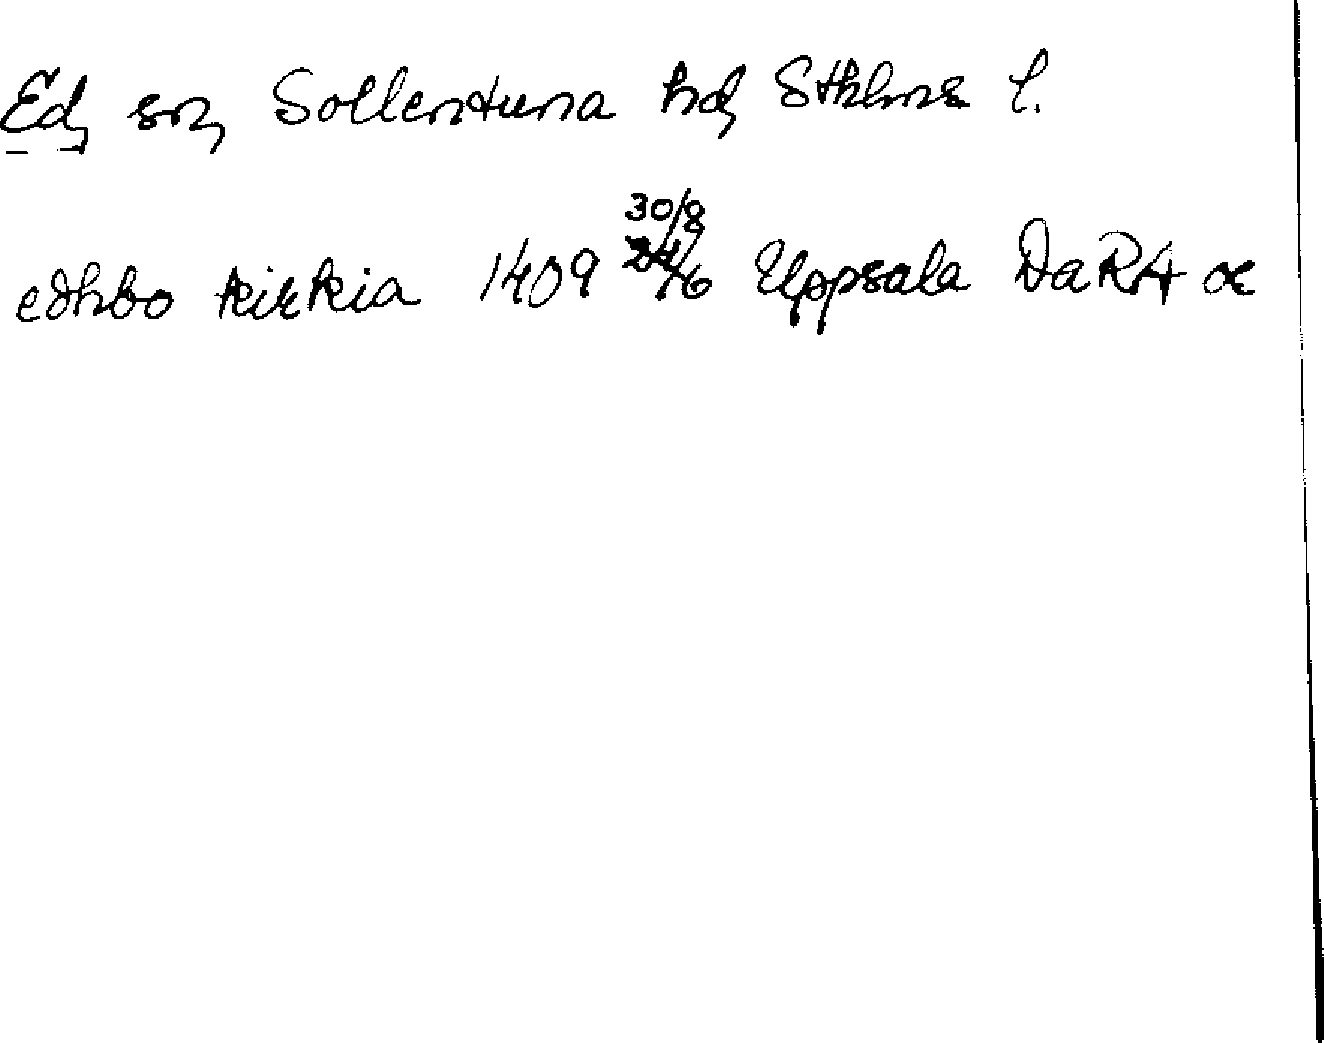 Ed, sn, Sollentuna hd, Sthlms l.
30/8
edhbo kirkia 1409 24/6 Uppsala DaRA or